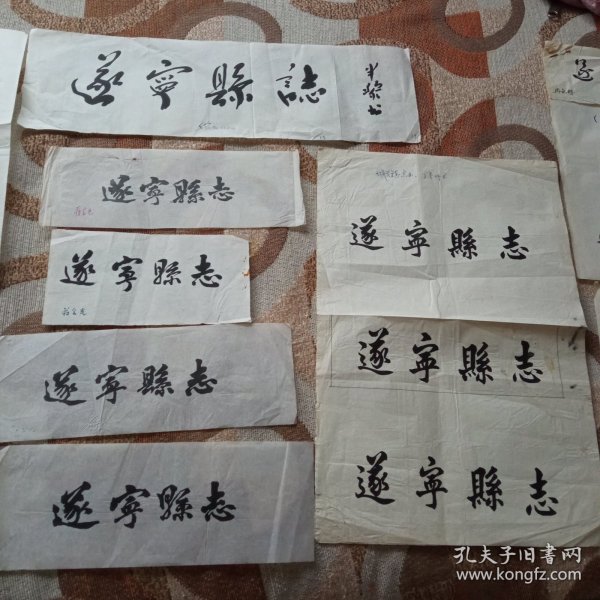 遂寧縣誌
遂寧縣志
遂寧縣志
遂寧縣志
遂寧縣志
遂寧縣志
遂寧縣志
遂寧縣志
遂
孔夫子旧书网
www.kongfz.com